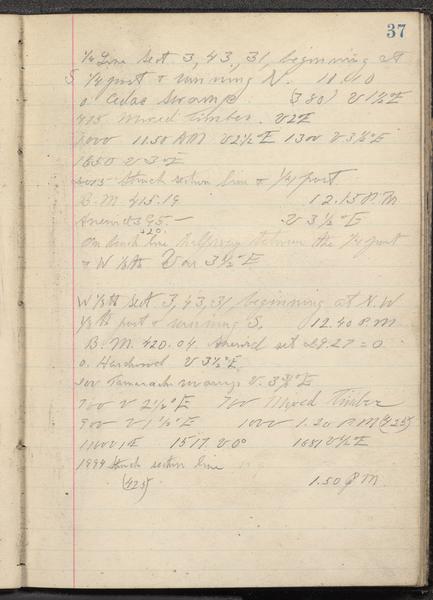 37
1/4 Line Sect 3, 43, 31, beginning at
S 1/4 post & running N. 11.40
0. Cedar Swamp (380) V 1 1/2° E
415 Mixed timber. V 2 E
1000 11.50 AM V 2 1/2° E 1300 V 3 1/2° E
1650 V 3° E
2015 Struck section line & 1/4 post
B.M. 415.19 12.15 P.M
Aneroid 395.— V 3 1/2° E
+20
On south line halfway between the 1/4 post
& W 1/8th Var 3 1/2° E
W 1/8th Sect 3, 43, 31, beginning at N.W
1/8th post & running S. 12.40 P.M
B.M. 420.04. Aneroid set = 0
0. Hardwood V 3 1/2° E
Tamarack swamp V. 3° E
700 V 2 1/2° E 700 Mixed timber
900 V 1 1/2° E 1000 1.20 P.M (425)
1100 V 1 E 1517 V 0° 1651 V 1/2° E
1999 Struck section line
(425) 1.50 P.M.